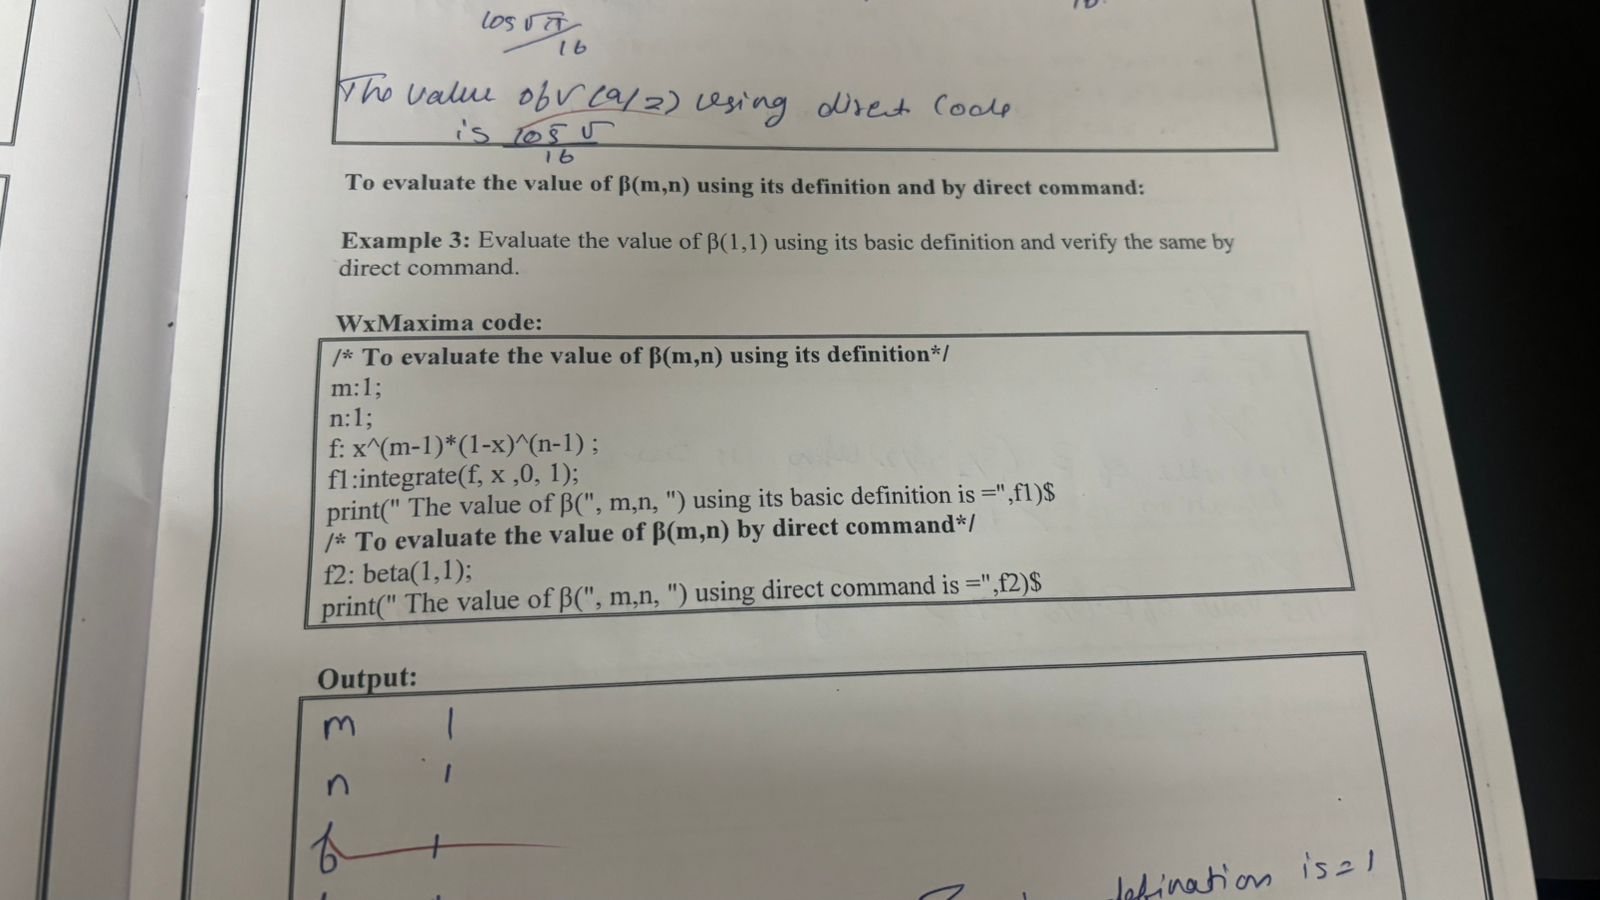 105√π
16
The value of Γ(9/2) using direct code
is 105 √
16
To evaluate the value of β(m,n) using its definition and by direct command:
Example 3: Evaluate the value of β(1,1) using its basic definition and verify the same by
direct command.
WxMaxima code:
/* To evaluate the value of β(m,n) using its definition*/
m:1;
n:1;
f: x^(m-1)*(1-x)^(n-1) ;
f1:integrate(f, x ,0, 1);
print(" The value of β(", m,n, ") using its basic definition is =",f1)$
/* To evaluate the value of β(m,n) by direct command*/
f2: beta(1,1);
print(" The value of β(", m,n, ") using direct command is =",f2)$
Output:
m 1
n 1
f 1
defination is = 1